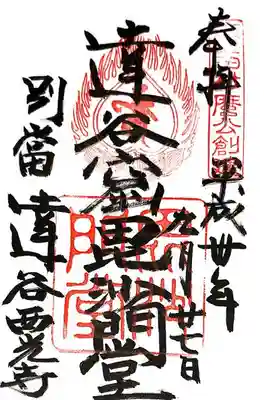 奉拝
平成卅年
九月廿七日
達谷窟毘沙門堂
別當
達谷西光寺